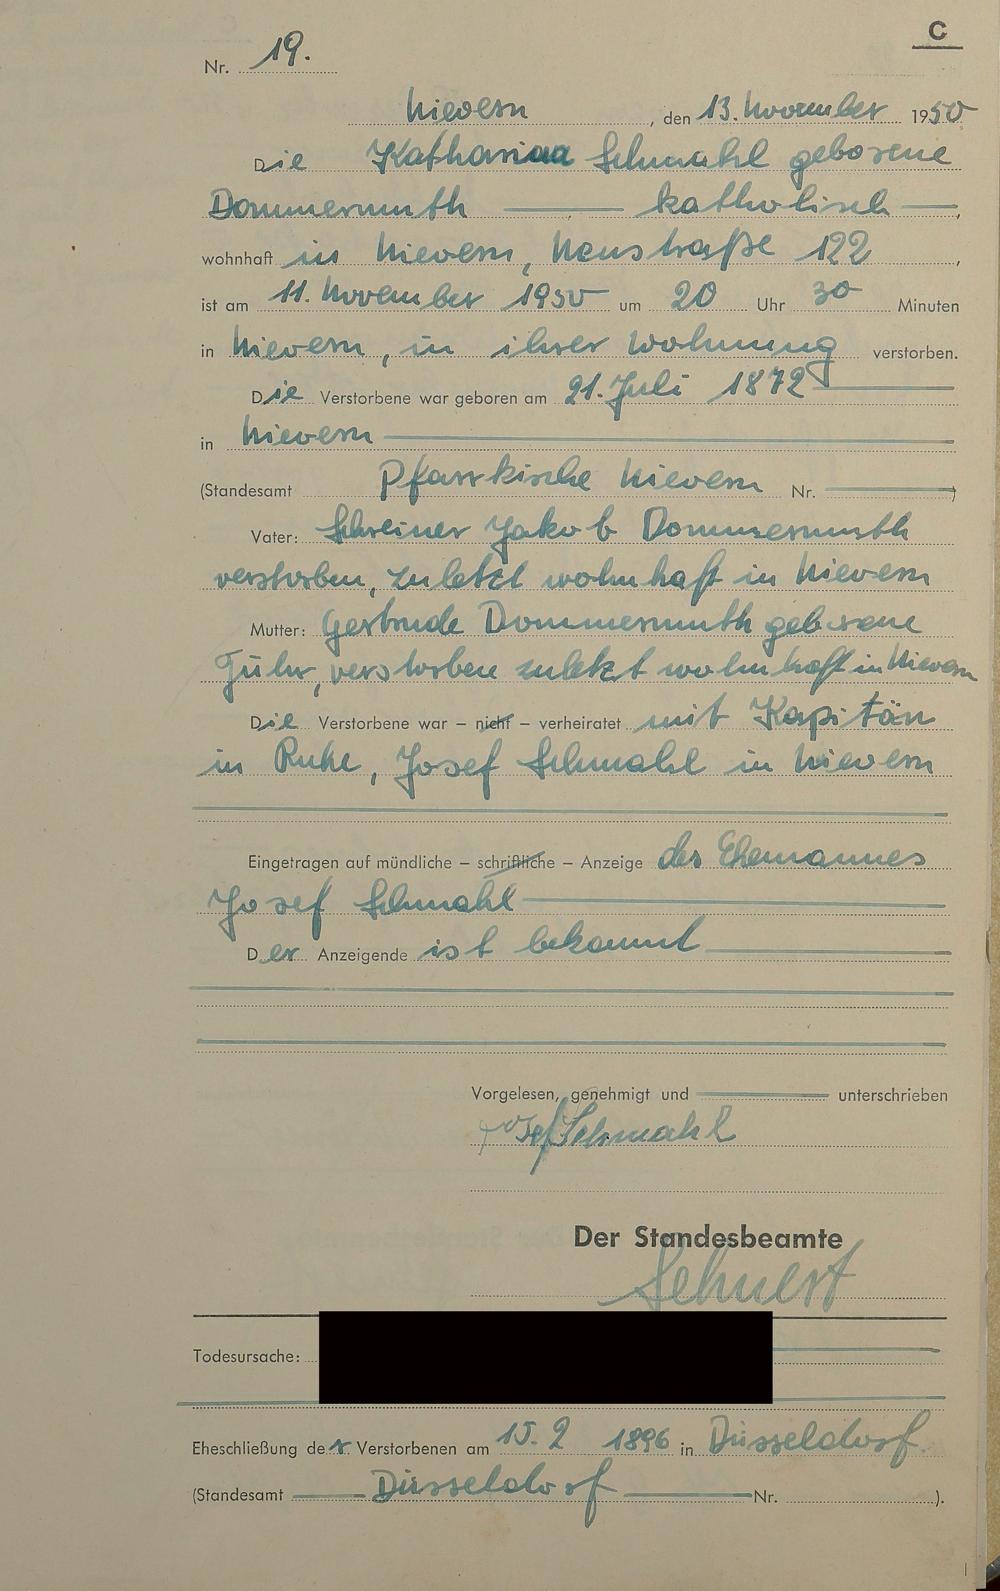 C
Nr. 19.
Nievern, den 13. November 1950
Die Katharina Schmahl geborene
Dommermuth katholisch,
wohnhaft in Nievern, Neustraße 122,
ist am 11. November 1950 um 20 Uhr 30 Minuten
in Nievern, in ihrer Wohnung verstorben.
Die Verstorbene war geboren am 21. Juli 1872
in Nievern
(Standesamt Pfarrkirche Nievern Nr. )
Vater: Schreiner Jakob Dommermuth
verstorben, zuletzt wohnhaft in Nievern
Mutter: Gertrude Dommermuth geborene
Führ, verstorben zuletzt wohnhaft in Nievern
Die Verstorbene war – nicht – verheiratet mit Kapitän
in Ruhe, Josef Schmahl in Nievern
Eingetragen auf mündliche – schriftliche – Anzeige des Ehemannes
Josef Schmahl
Der Anzeigende ist bekannt
Vorgelesen, genehmigt und unterschrieben
Josef Schmahl
Der Standesbeamte
Todesursache:
Eheschließung der Verstorbenen am 15. 2 1896 in Düsseldorf
(Standesamt Düsseldorf Nr. ).